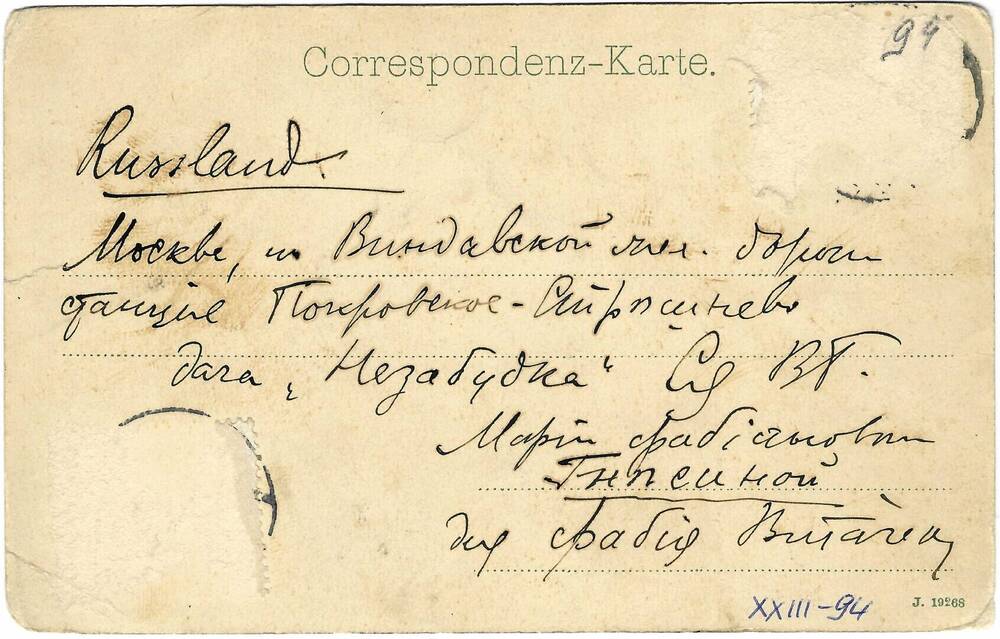 94
Correspondenz-Karte.
Russland
Москва, Виндавской жел. дороги
станцiя Покровское-Стрѣшнево
дача „Незабудка“ ВГ.
Марiи Фабiановнѣ
Гнѣсиной
для Фабiя Витачека
XXIII-94
J. 19268